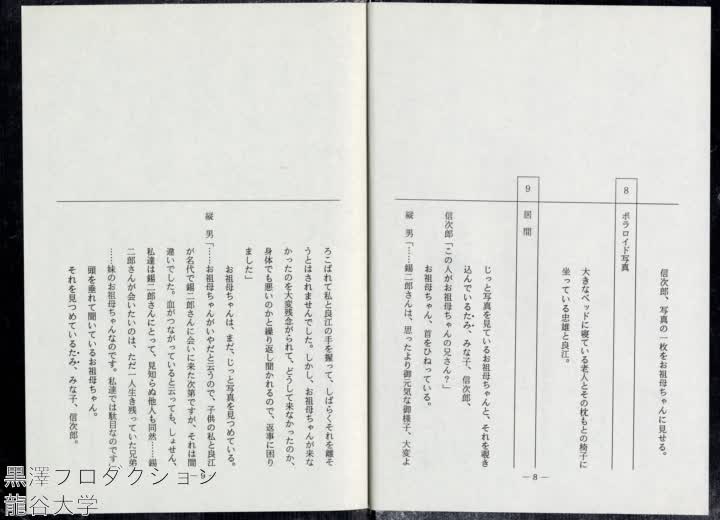 信次郎、写真の一枚をお祖母ちゃんに見せる。
8 ポラロイド写真
大きなベッドに寝ている老人とその枕もとの椅子に
坐っている忠雄と良江。
9 居間
じっと写真を見ているお祖母ちゃんと、それを覗き
込んでいるたみ、みな子、信次郎、
信次郎「この人がお祖母ちゃんの兄さん?」
お祖母ちゃん、首をひねっている。
縦男「……錫二郎さんは、思ったより御元気な御様子、大変よ
— 8 —
ろこばれて私と良江の手を握って、しばらくそれを離そ
うとはされませんでした。しかし、お祖母ちゃんが来な
かったのを大変残念がられて、どうして来なかったのか、
身体でも悪いのかと繰り返し聞かれるので、返事に困り
ました」
お祖母ちゃんは、まだ、じっと写真を見つめている。
縦男「……お祖母ちゃんがいやだと云うので、子供の私と良江
が名代で錫二郎さんに会いに来た次第ですが、それは間
違いでした。血がつながっていると云っても、しょせん、
私達は錫二郎さんにとって、見知らぬ他人も同然……錫
二郎さんが会いたいのは、ただ一人生き残っていた兄弟
……妹のお祖母ちゃんなのです。私達では駄目なのです」
頭を垂れて聞いているお祖母ちゃん。
それを見つめているたみ、みな子、信次郎。
9
黒澤プロダクション
龍谷大学